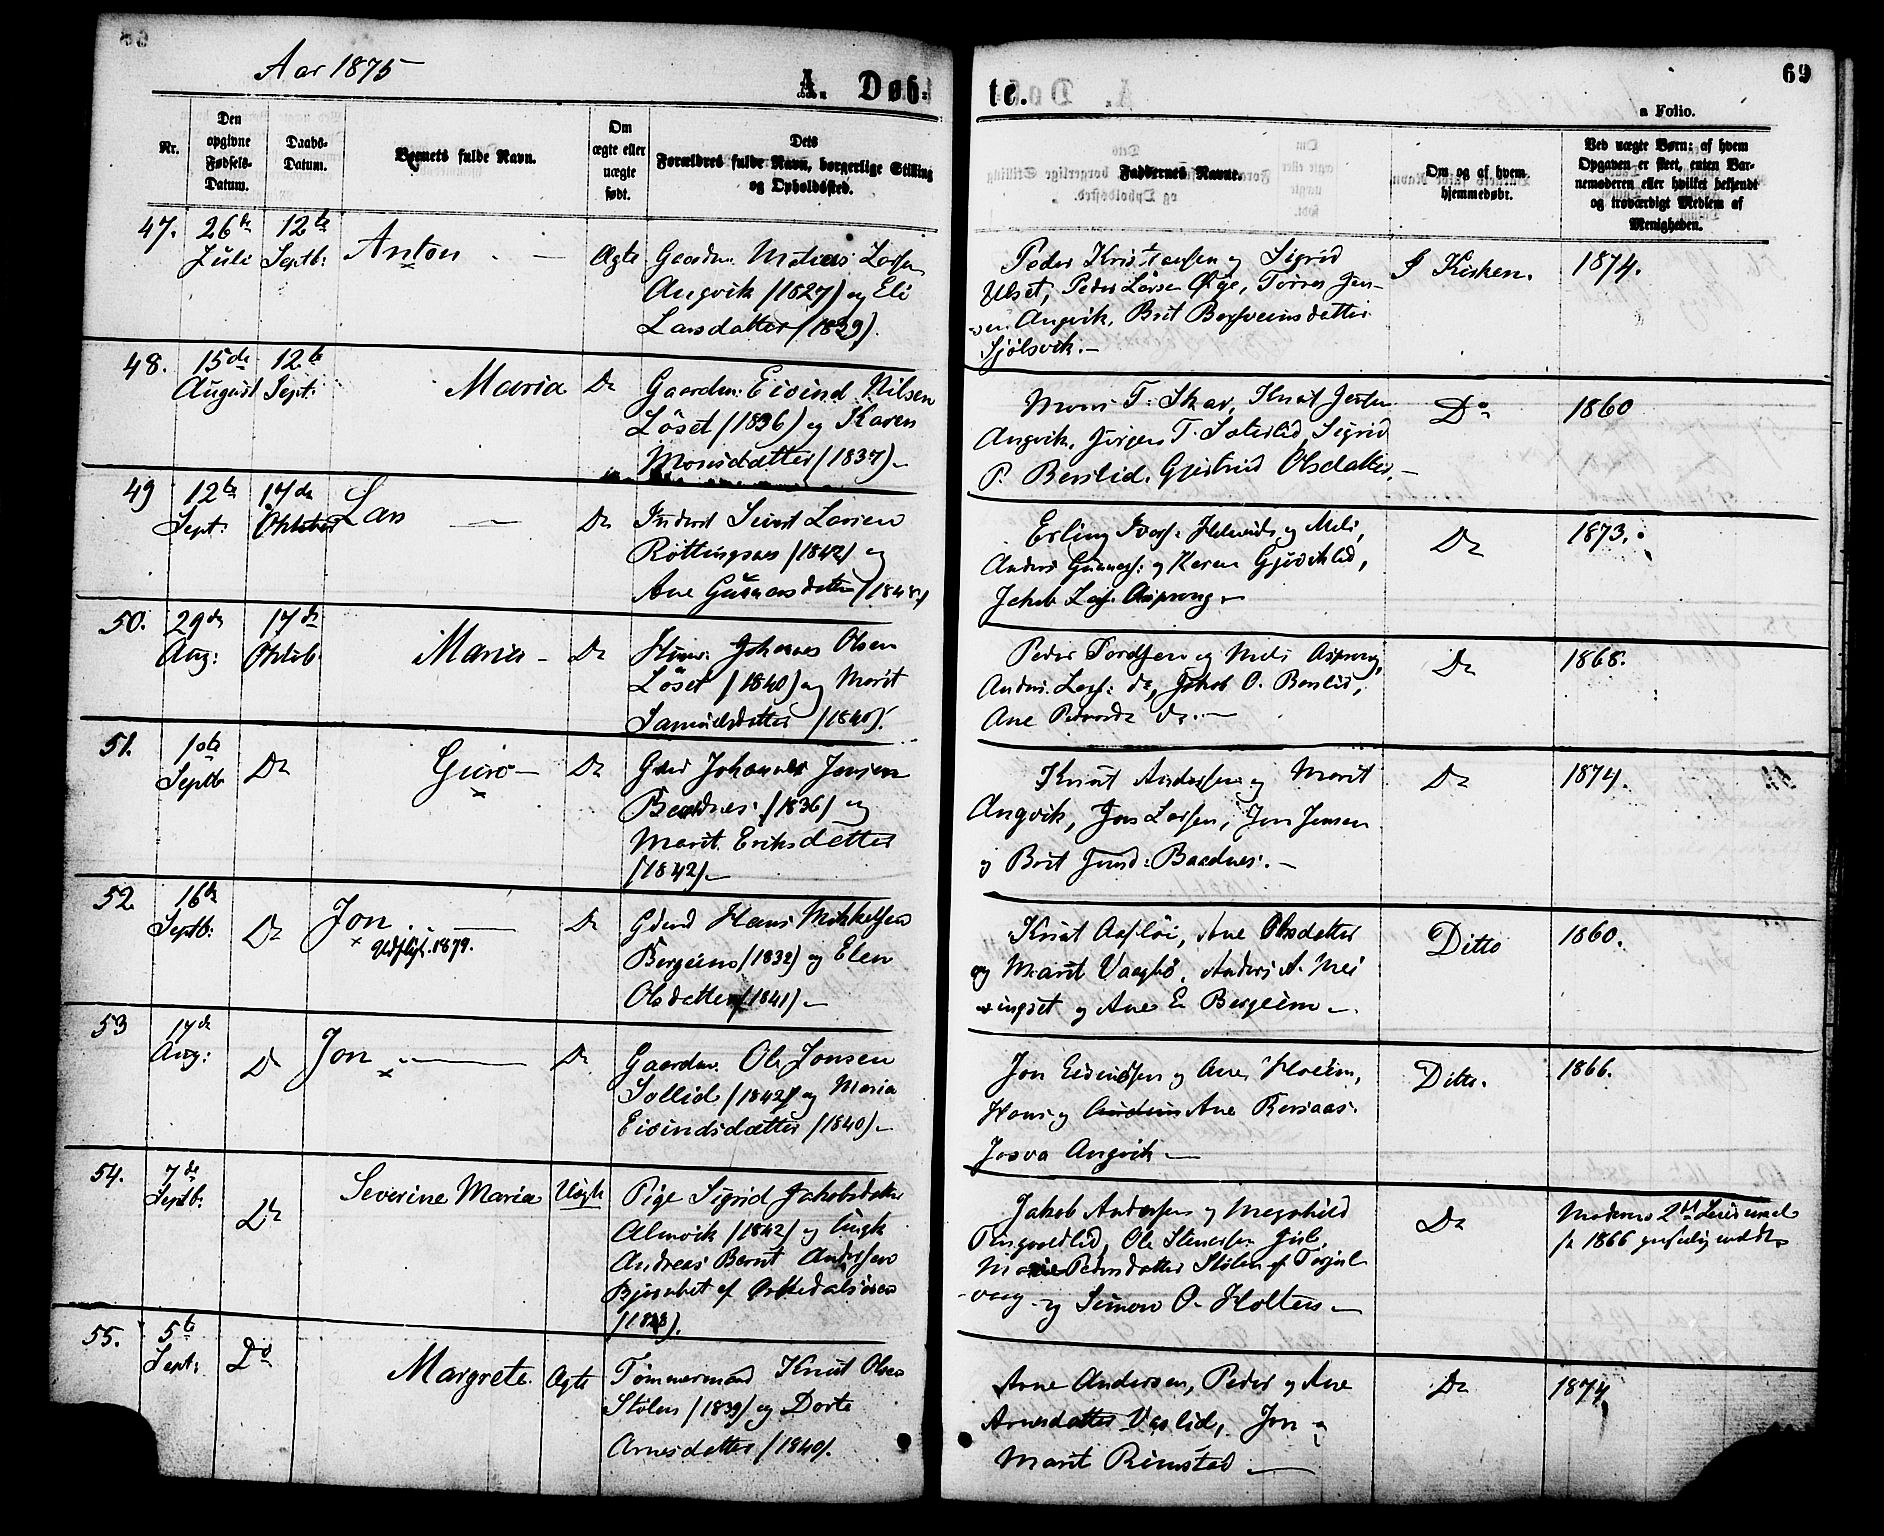 Aar 1875
A. Døb-
te.
69
a Folio.
Nr.
Den opgivne Fødsels-Datum.
Daabs-Datum.
Barnets fulde Navn.
Om ægte eller uægte født.
Dets Forældres fulde Navn, borgerlige Stilling og Opholdssted.
Faddernes Navne.
Om og af hvem hjemmedøbt.
Ved uægte Børn: af hvem Opgaven er skeet, enten Barnemoderen eller hvilket bekjendt og troværdigt Medlem af Menigheden.
47. 26de Juli 12te Septb: Anton Ægte
Gaardm. Matias Larsen
Angvik (1827) og Eli
Larsdatter (1839).
Peder Kristensen og Sigrid
Ulset, Peder Larsen Øye, Torres Jen-
sen Angvik, Brit Bersveinsdatter
Sjølsvik.-
I Kirken. 1874.
48. 15de August 12te Sept: Maria Do
Gaardm. Eivind Nilsen
Løset (1836) og Karen
Monsdatter (1837)-
Mons T. Skar, Knut
Angvik, Jørgen T. Sæterlid, Sigrid
P. Berslid, Gjertrud Olsdatter-
Do 1860
49 12te Sept: 17de Oktober Lars Do
Inderst Sivert Larsen
Røttingsnes (1842) og
Ane Gunnarsdatter (1848)
Erling Ivers: og Meli,
Anders Gunners: og Karen Gjøviklid,
Jakob Lars. Aspeng-
Do 1873.
50. 29de Aug: 17de Oktob. Maria- Do
Husm. Johannes Olsen
Løset (1840) og Marit
Samuelsdatter (1840).
Peder Tordsen og Meli Aspeng,
Anders Lars: do, Jakob O. Berslid,
Ane Do.-
Do 1868.
51. 1ste Septb Do Guro- Do
Johannes Jonsen
Baadnes (1836) og
Marit Eriksdatter
(1842)-
Knut Andersen og Marit
Angvik, Jon Larsen, Jon Jonsen
og Brit Baadnes.-
Do 1874.
52. 16de Septb: Do Jon Do
1879.
Hans Mikkelsen
Bergeim (1832) og Elen
Olsdatter (1841)-
Knut Aafløi, Ane Olsdatter
og Marit Vaagbø, Anders A. Mei-
singset og Ane E. Bergeim-
Ditto 1860.
53 17de Aug: Do Jon Do
Gaardm. Ole Jonsen
Sollid (1842) og Maria
Eivindsdatter (1840)-
Jon Eivindsen og Ane Hoem,
Hans og Ane Bersaas.
Josva Angvik-
Ditto. 1866.
54. 7de Septb: Do Severine Maria Uægte
Pige Sigrid Jakobsdatter
Almvik (1842) og Ungk
Andreas Bernt Andersen
Jakob Andersen og Magnhild
Tingvoldlid, Ole Stenersen
Marie Pedersdatter Stølen af Torjul-
vaag og Simon O. Holten-
Do
Moderens 2det Leiermaal
1866
55. 5te Sept: Do Margrete. Ægte
Tømmermand Knut Olsen
Stølen (1839) og Dorte
Arnesdatter (1840).
Arne Andersen, Peder og Ane
Arnesdatter Vaslid, Jon og
Marit Rimstad-
Do 1874.